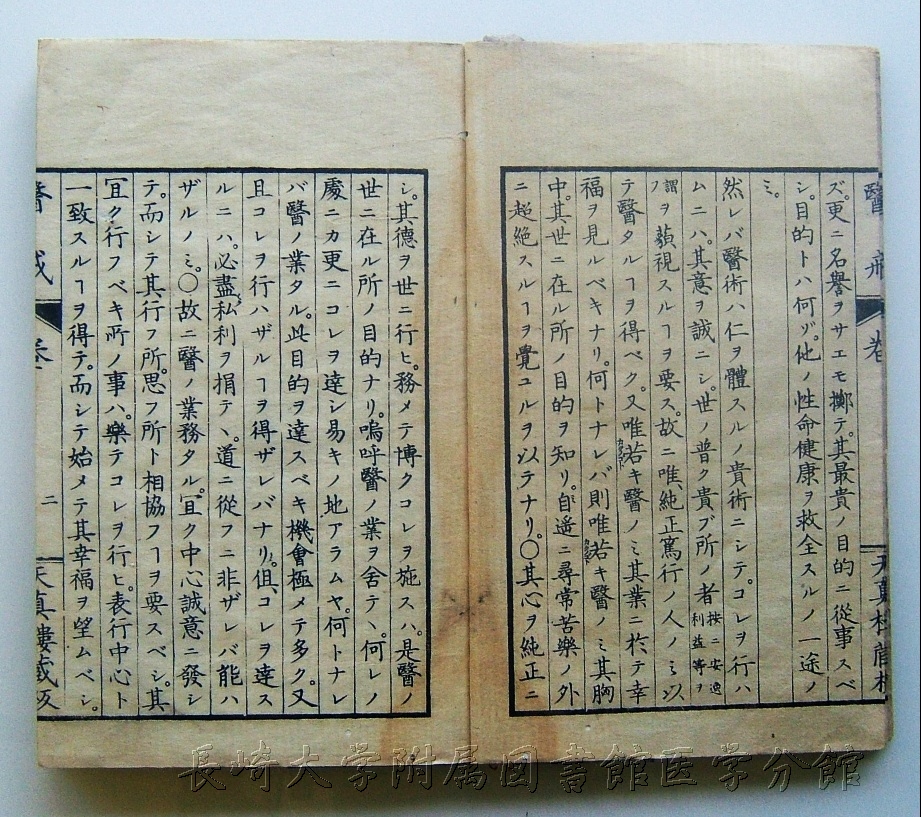 醫戒 卷
天真樓藏板
ズ。更ニ名譽ヲサエモ擲テ。其最貴ノ目的ニ從事スベ
シ。目的トハ何ゾ。他ノ性命健康ヲ救全スルノ一途ノ
ミ。
然レバ醫術ハ仁ヲ體スルノ貴術ニシテ。コレヲ行ハ
ムニハ。其意ヲ誠ニシ。世ノ普ク貴ブ所ノ者按ニ安逸利益等ヲ
謂フヲ藐視スルヿヲ要ス。故ニ唯純正篤行ノ人ノミ以
テ醫タルヿヲ得ベク。又唯若キ醫ノミ其業ニ於テ幸
福ヲ見ルベキナリ。何トナレバ則唯若キ醫ノミ其胸
中。其世ニ在ル所ノ目的ヲ知リ。自遥ニ尋常苦樂ノ外
ニ超絶スルヿヲ覺ユルヲ以テナリ。〇其心ヲ純正ニ
シ。其德ヲ世ニ行ヒ。務メテ博クコレヲ施スハ。是醫ノ
世ニ在ル所ノ目的ナリ。嗚呼醫ノ業ヲ舍テヽ。何レノ
處ニカ更ニコレヲ達シ易キノ地アラムヤ。何トナレ
バ醫ノ業タル。此目的ヲ達スベキ機會極メテ多ク。又
且コレヲ行ハザルヿヲ得ザレバナリ。但コレヲ達ス
ルニハ。必盡私利ヲ捐テヽ。道ニ從フニ非ザレバ能ハ
ザルノミ。〇故ニ醫ノ業務タル。宜ク中心誠意ニ發シ
テ。而シテ其行フ所。思フ所ト相協フヿヲ要スベシ。其
宜ク行フベキ所ノ事ハ。樂テコレヲ行ヒ。表行中心ト
一致スルヿヲ得テ。而シテ始メテ其幸福ヲ望ムベシ。
醫戒 卷 二
天真樓藏板
長崎大学附属図書館医学分館